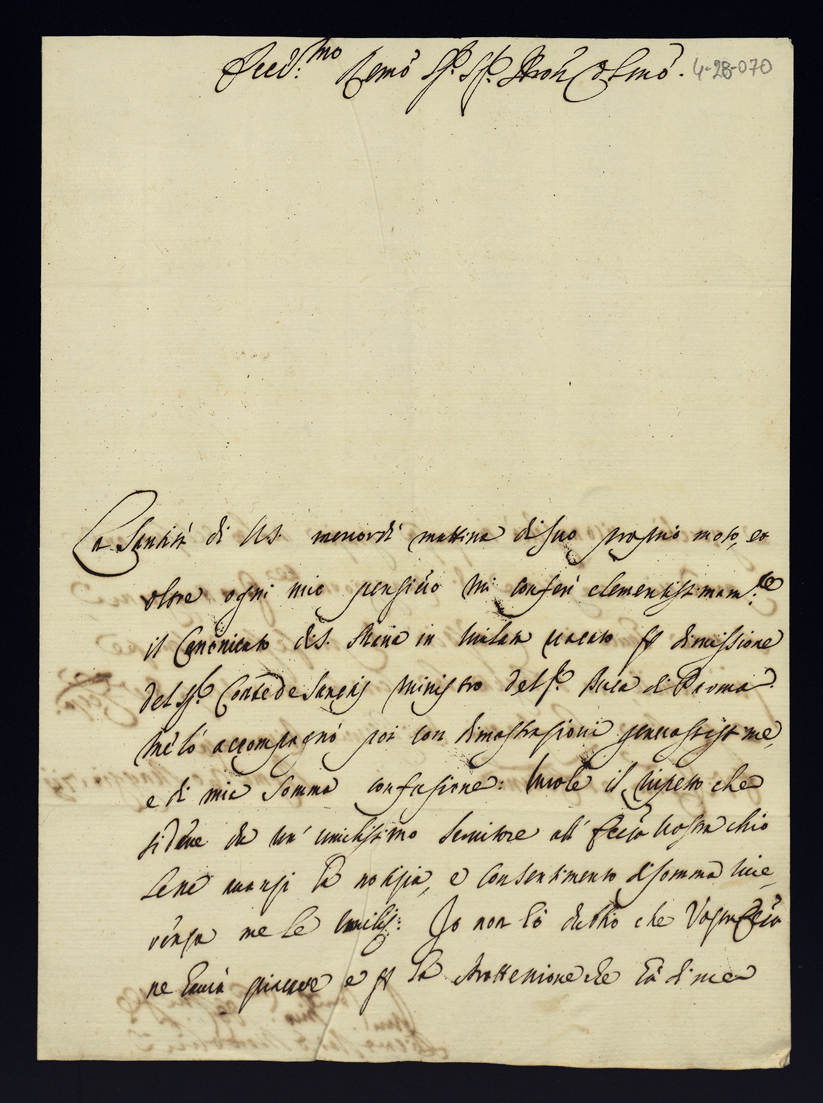 Ecc.mo Remo Sig. Sig. Pron Colmo.
4-28-070
La Santità di N.S. mercordì mattina di suo proprio moto, ed
oltre ogni mio pensiero mi conferì clementissimam.te
il Canonicato di S. Maria in vacato p dimissione
del Sig. Conte de Sanctis Ministro del Sig. Duca di Parma.
Me lo accompagnò poi con dimostrazioni generosissime,
e di mia somma confusione: Vuole il rispetto che
si deve da un' umilissimo servitore all' Eccza Vostra ch'io
le ne avanzi la notizia, e con sentimento di somma rive,
renza me le umilij: Io non hò dubio che Vostra Eccza
ne havrà piacere e p la protettione che hà di me